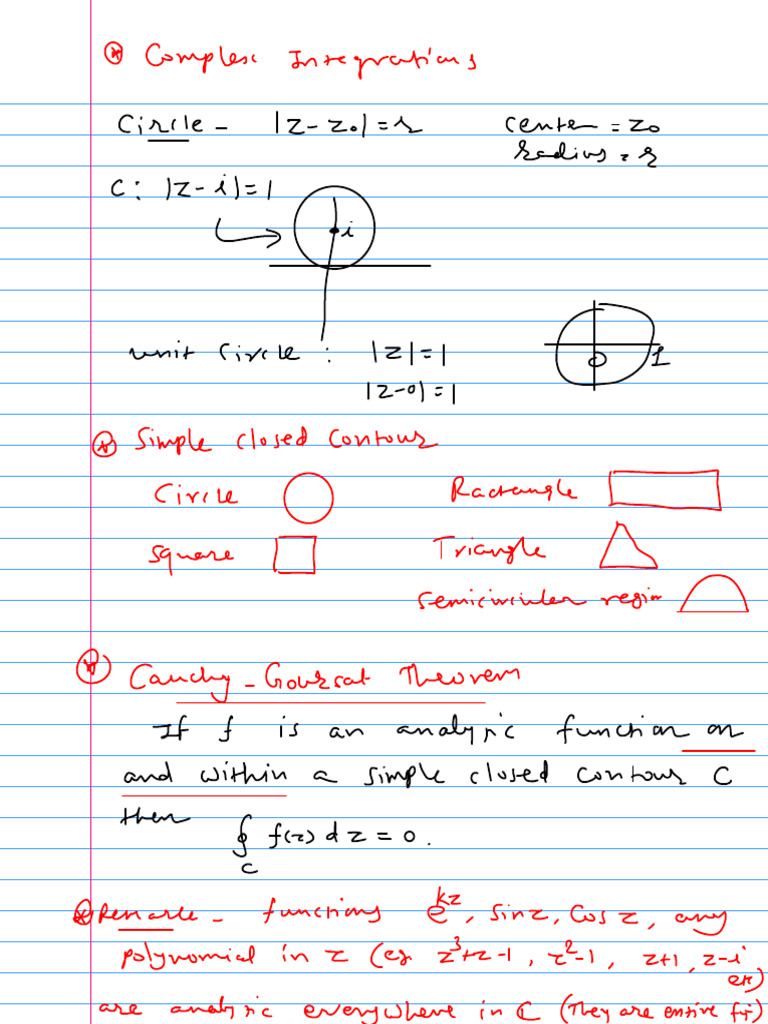 Complex Integrations
Circle - |z - z0| = r center = z0
radius = r
C: |z - i| = 1
i
unit circle : |z| = 1
0 1
|z-0| = 1
Simple closed Contour
Circle Ractangle
square Triangle
semicircular region
Cauchy - Goursat Theorem
If f is an analytic function on
and within a simple closed contour C
then ∮_C f(z) dz = 0.
Remark - functions e^{kz}, sin z, Cos z, any
polynomial in z (eg z^3+z-1, z^2-1, z+1, z-i
etc)
are analytic everywhere in ℂ (They are entire fn)